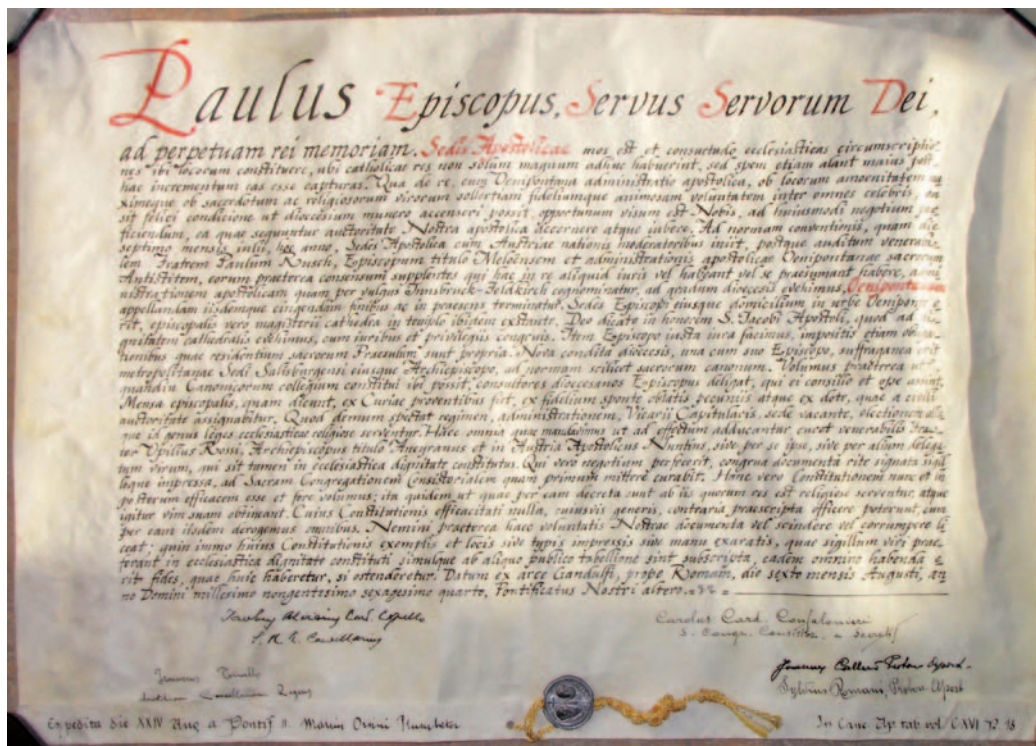 Paulus Episcopus, Servus Servorum Dei,
ad perpetuam rei memoriam. Sedis Apostolicae mos est et consuetudo ecclesiasticas circumscriptio-
nes ibi locorum constituere, ubi catholicae res non solum magnum adhuc habuerint, sed spem etiam alant maius post-
hac incrementum eas esse capturas. Qua de re, cum Oenipontana administratio apostolica, ob locorum amoenitatem
ximeque ob sacerdotum ac religiosorum virorum sollertiam fideliumque animosam voluntatem inter omnes celebris, ea
sit felici condicione ut dioecesium numero accenseri possit, opportunum visum est Nobis, ad huiusmodi negotium per-
ficiendum, ea quae sequuntur auctoritate Nostra apostolica decernere atque iubere. Ad normam conventionis, quam die
septimo mensis iulii, hoc anno, Sedes Apostolica cum Austriae nationis moderatoribus iniit, postque auditum venerabi-
lem Fratrem Paulum Rusch, Episcopum titulo Meloensem et administrationis apostolicae Oenipontanae sacrorum
Antistitem, eorum praeterea consensum supplentes qui hac in re aliquid iuris vel habeant vel se praesumant habere, admi-
nistrationem apostolicam quam per vulgus Innsbruck-Feldkirch cognominatur, ad gradum dioecesis evehimus,
appellandam iisdemque cingendam finibus ac in praesens terminatur. Sedes Episcopi eiusque domicilium in urbe Oeniponte e-
rit, episcopalis vero magisterii cathedra in templo ibidem exstante, Deo dicato in honorem S. Iacobi Apostoli, quod ad di-
gnitatem cathedralis evehimus, cum iuribus et privilegiis congruis. Item Episcopo iusta iura facimus, impositis etiam obliga-
tionibus quae residentum sacrorum Praesulum sunt propria. Nova condita dioecesis, una cum suo Episcopo, suffraganea erit
metropolitanae Sedi Salisburgensi eiusque Archiepiscopo, ad normam scilicet sacrorum canonum. Volumus praeterea ut
quamdiu Canonicorum collegium constitui ibi possit, consultores dioecesanos Episcopus deligat, qui ei consilio et ope assint.
Mensa episcopalis, quam dicunt, ex Curiae proventibus fiet, ex fidelium sponte oblatis pecuniis atque ex dote, quae a civili
auctoritate assignabitur. Quod demum spectat regimen, administrationem, Vicarii Capitularis, sede vacante, electionem
que id genus leges ecclesiasticae religiose serventur. Haec omnia quae mandavimus ut ad effectum adducantur curet venerabilis Fra-
ter Opilius Rossi, Archiepiscopus titulo Ancyranus et in Austria Apostolicus Nuntius, sive per se ipse, sive per alium delega-
tum virum, qui sit tamen in ecclesiastica dignitate constitutus. Qui vero negotium perfecerit, congrua documenta rite signata sigil-
loque impressa, ad Sacram Congregationem Consistorialem quam primum mittere curabit. Hanc vero Constitutionem nunc et in
posterum efficacem esse et fore volumus; ita quidem ut quae per eam decreta sunt ab iis quorum res est religiose serventur, atque
igitur vim suam obtineant. Cuius Constitutionis efficacitati nulla, cuiusvis generis, contraria praescripta officere poterunt, cum
per eam iisdem derogemus omnibus. Nemini praeterea haec voluntatis Nostrae documenta vel scindere vel corrumpere li-
ceat; quin immo huius Constitutionis exemplis et locis sive typis impressis sive manu exaratis, quae sigillum viri prae-
ferant in ecclesiastica dignitate constituti simulque ab aliquo publico tabellione sint subscripta, eadem omnino habenda e-
rit fides, quae huic haberetur, si ostenderetur. Datum ex arce Gandulfi, prope Romam, die sexto mensis Augusti, an-
no Domini millesimo nongentesimo sexagesimo quarto, Pontificatus Nostri altero.
Card. Copello
S. R. E. Cancellarius
Carolus Card. Confalonieri
S. Congr. Consist. a Secretis
Sylvius Romani, Proton. Apost.
Expedita die XXIV Aug a Pontif II.
In Canc Ap tab vol CXVI N° 18